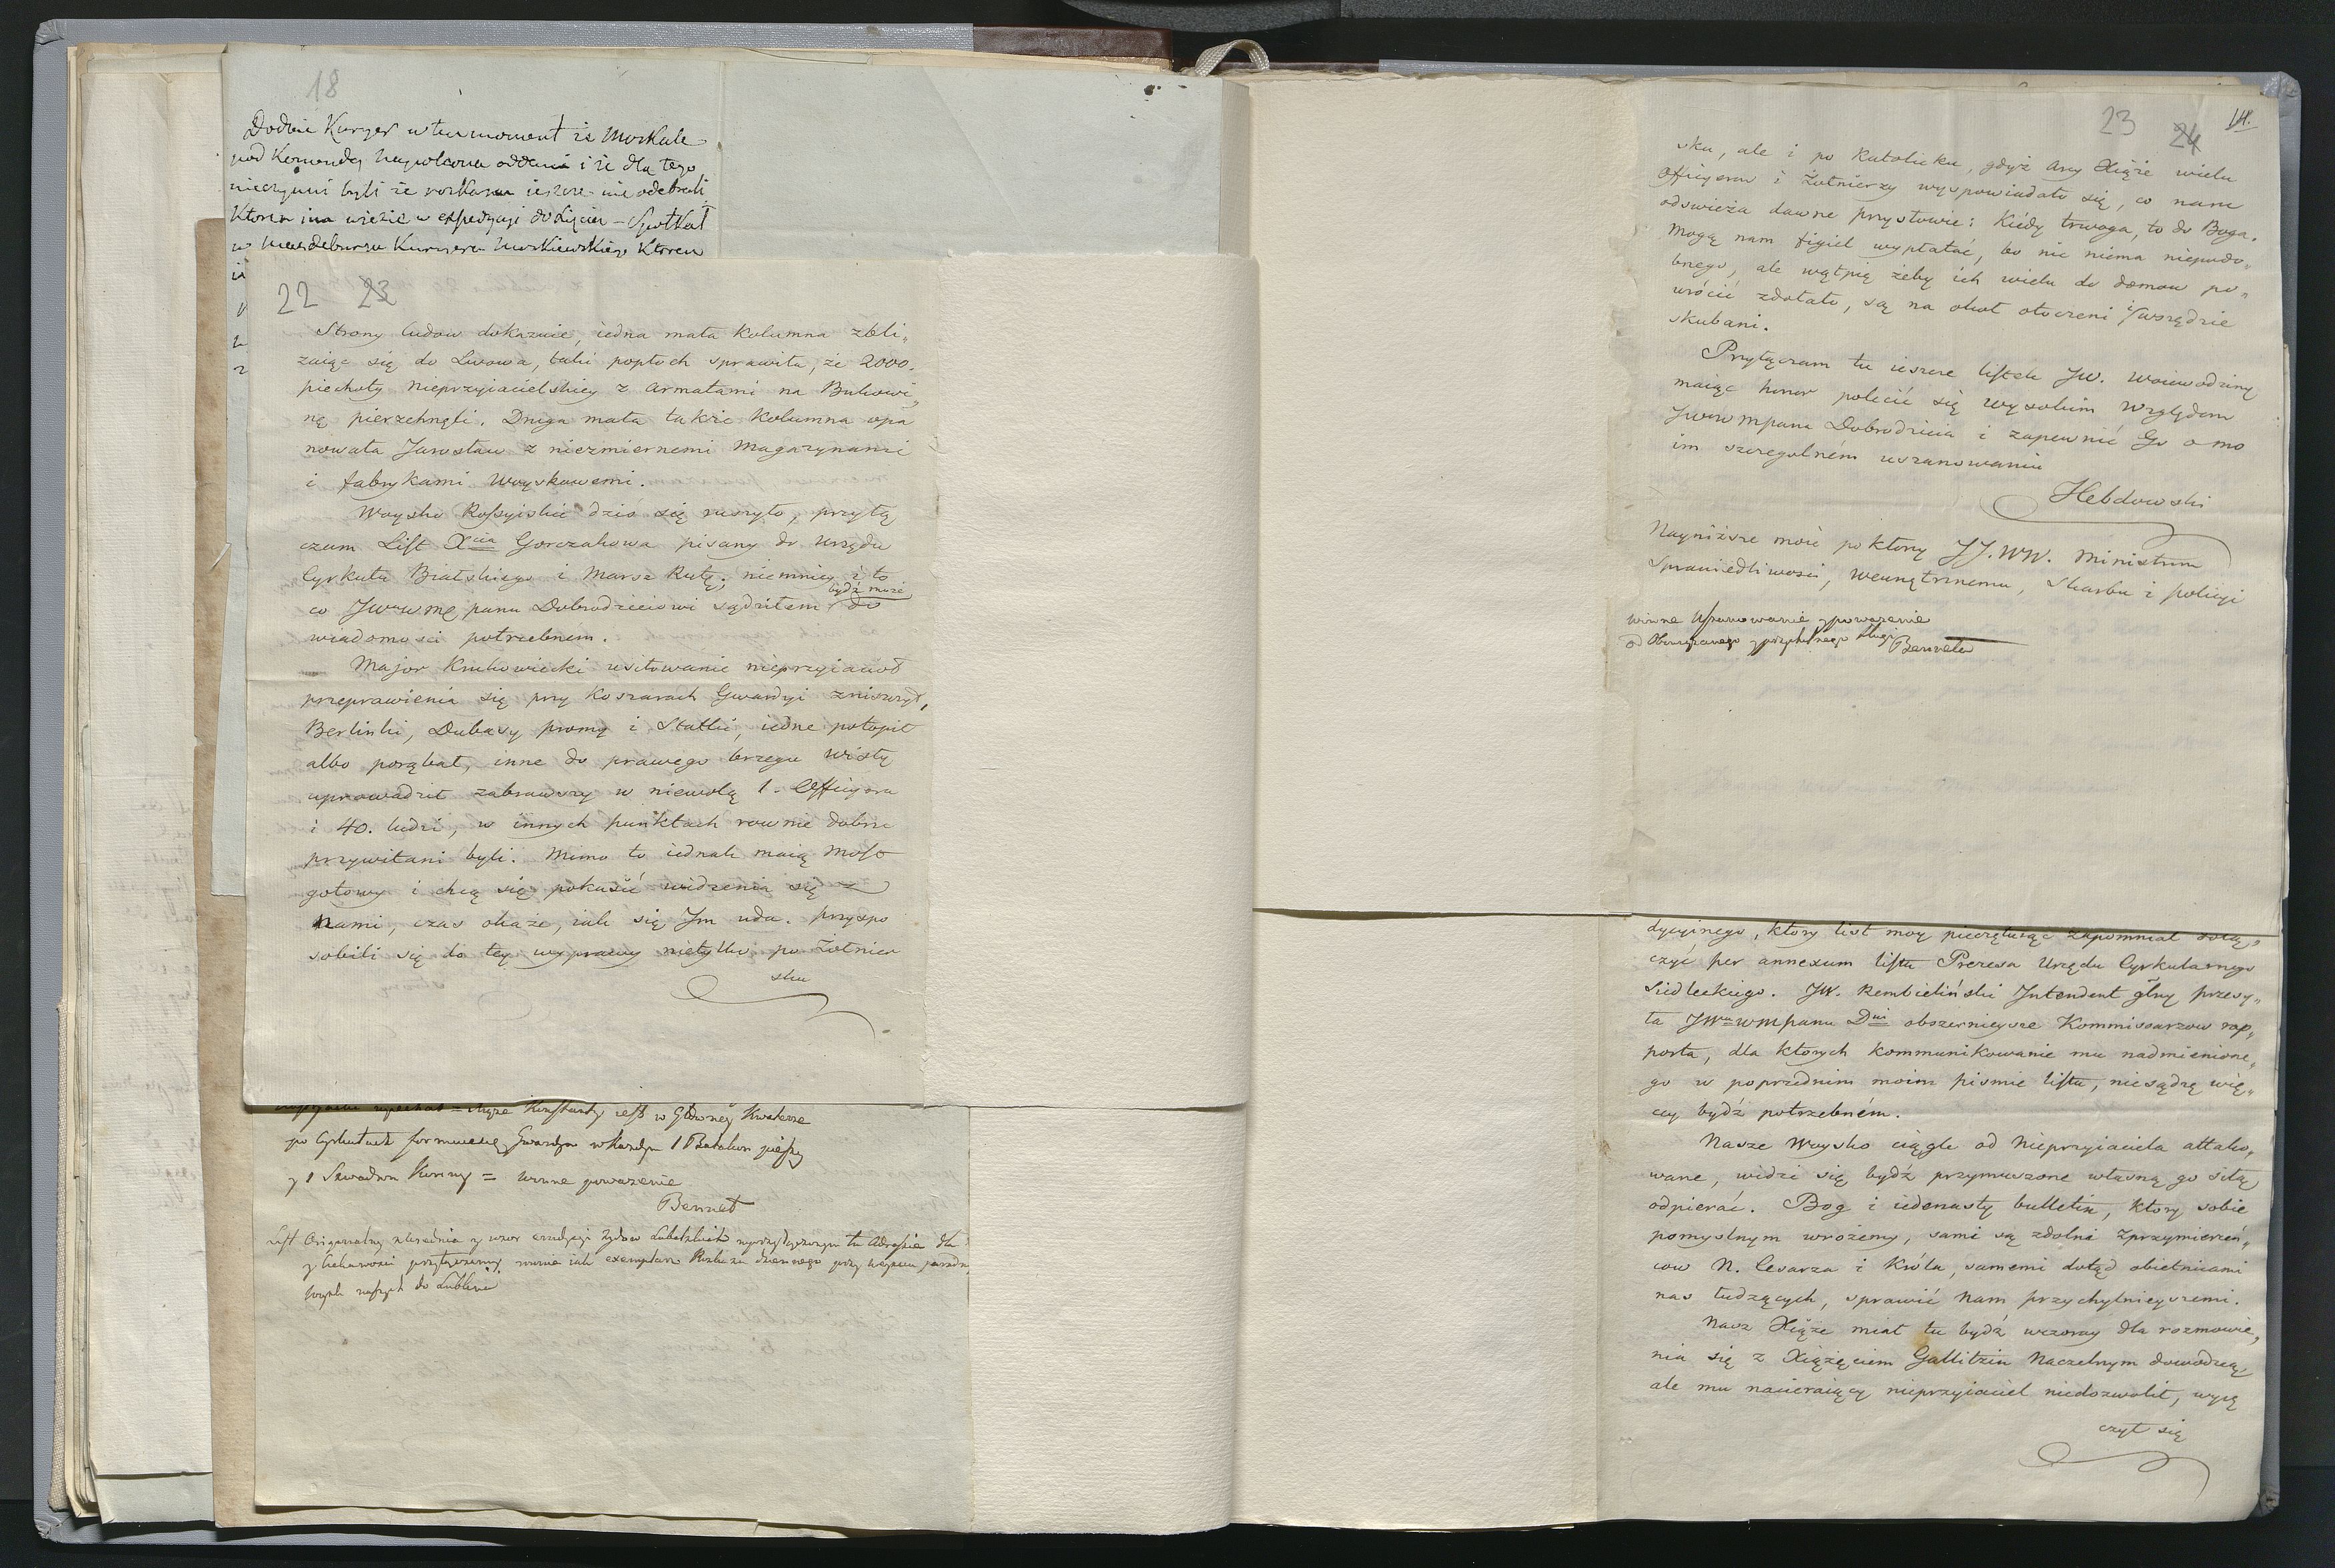 18
Dodaie Kuryer w ten moment iż Moskale
pod Komendą Napoleona oddani i że dla tego
nieczynni byli że roskazu ieszcze nie odebrali
Ktoren ina wiezie w expedycyi do Xięcia – Spotkał
w Magdeburgu Kuryera Moskiewskiego Ktoren
22 23
Strony ludow dokazuie, iedna mała Kolumna zbli„
zaiąc się do Lwowa, taki popłoch sprawiła, że 2000.
piechoty Nieprzyiacielskiey z Armatami na Bukowi„
nę pierzchnęli. Druga mała także Kolumna opa
nowała Jarosław z niezmiernemi Magazynami
i fabrykami Woyskowemi.
Woysko Rossyiskie dziś się ruszyło, przyłą
czam List Xcia Gorczakowa pisany do Urzędu
Cyrkułu Bialskiego i Marsz Rutę; niemniey i to
co JWWMę panu Dobrodzieiowi sądziłem bydź może do
wiadomości potrzebnem.
Major Krukowiecki usiłowanie nieprzyiacioł
przeprawienia się przy Koszarach Gwardyi zniszczył,
Berlinki, Dubasy promy i Statki, iedne potopił
albo porąbał, inne do prawego brzegu Wisły
uprowadził zabrawszy w niewolą 1. Officyera
i 40. ludzi, w innych punktach rownie dobrze
przywitani byli. Mimo to iednak maią Most
gotowy i chcą się pokusić widzenia się z
Nami, czas okaże, iak się Jm uda. przyspo
sobili się do tey wyprawy nietylko po Żołnier
sku
Xiąże Konstanty iest w Głowney Kwaterze
po Cyrkułach formuie się Gwardya w Każdym 1 Batalion pieszy
y 1 Szwadron Konny = winne poważenie
Bennet
List Originalny
wych naszych do Lublina
23 24 VII.
sku, ale i po Katolicku, gdyż Arcy Xiąże wielu
Officyerow i Żołnierzy wyspowiadało się, co nam
odswieża dawne przysłowie: Kiedy trwoga, to do Boga.
Mogą nam figiel wypłatać, bo nic niema niepodo„
bnego, ale wątpię żeby ich wielu do domow po„
wrócić zdołało, są na okoł otoczeni i wszędzie
skubani.
Przyłączam tu ieszcze listek JW. Woiewodziny
maiąc honor polecić się wysokim Względom
JWWMpana Dobrodzieia i zapewnić Go o mo
im szczegolném uszanowaniu
Hebdowski
Nayniższe moie pokłony JJ.WW. Ministrom
Sprawiedliwosci, Wewnętrznemu, Skarbu i policyi
winne Uszanowanie y poważenie
od Obowiązanego y przychylnego Sługi
dycyinego, ktory list moy pieczętuiąc zapomniał dołą„
czyć per annexum listu Prezesa Urzędu Cyrkularnego
Siedleckiego. JW. Rembieliński Jntendent głny przesy„
ła JWu WMpanu Dui obszernieysze Kommissarzow rap„
porta, dla ktorych kommunikowanie mu nadmienione„
go w poprzednim moim pismie listu, niesądzę wię„
cey bydź potrzebném.
Nasze Woysko ciągle od Nieprzyiaciela attako„
wane, widzi się bydź przymuszone własną go siłą
odpierać. Bog i iedenasty bulletin, ktory sobie
pomyslnym wrożemy, sami są zdolni zprzymierzeń„
cow N. Cesarza i Króla, samemi dotąd obietnicami
nas łudzących, sprawić Nam przychylnieyszemi.
Nasz Xiąże miał tu bydź wczoray dla rozmowie„
nia się z Xiążęciem Gallitzin Naczelnym dowodzcą,
ale mu nacieraiący nieprzyiaciel niedozwolił, wyłą
czył się